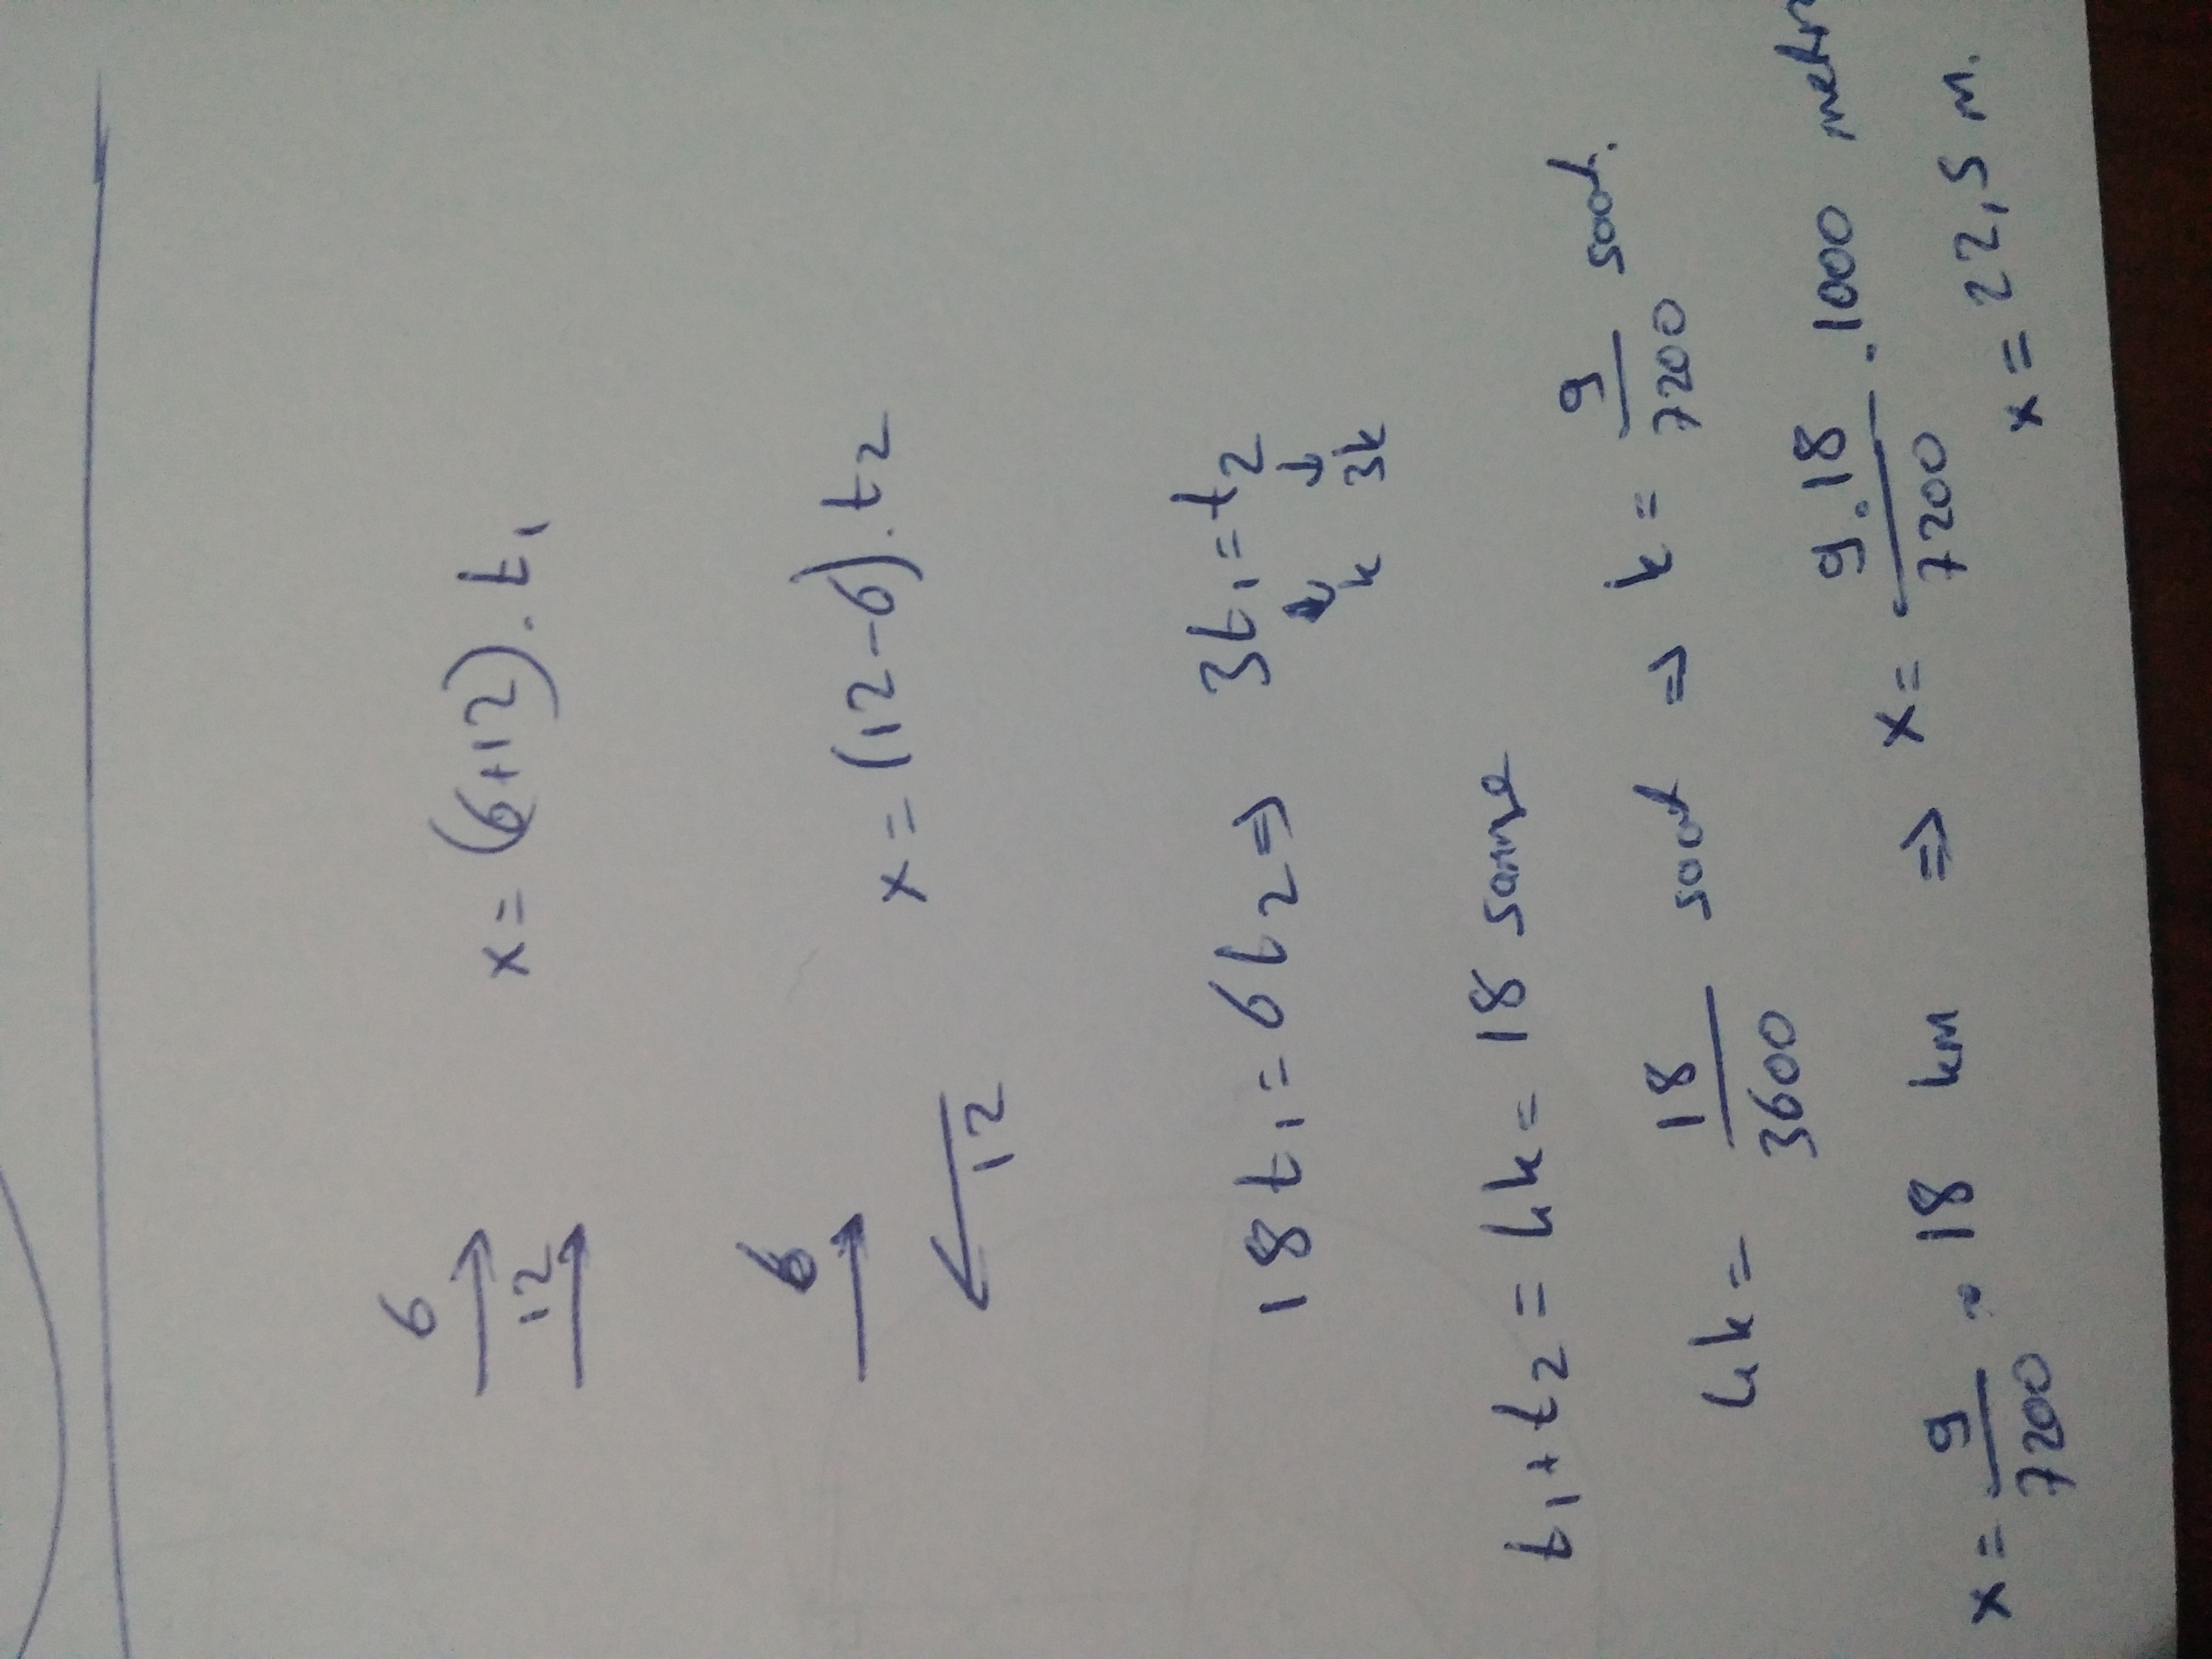 6
12
x = (6+12) . t₁
6
12
x = (12-6) . t₂
18 t₁ = 6 t₂ ⇒ 3t₁ = t₂
k 3k
t₁ + t₂ = 4k = 18 saniye
4k = 18/3600 saat ⇒ k = 9/7200 saat.
x = 9/7200 . 18 km ⇒ x = 9.18/7200 . 1000 metre
x = 22,5 m.